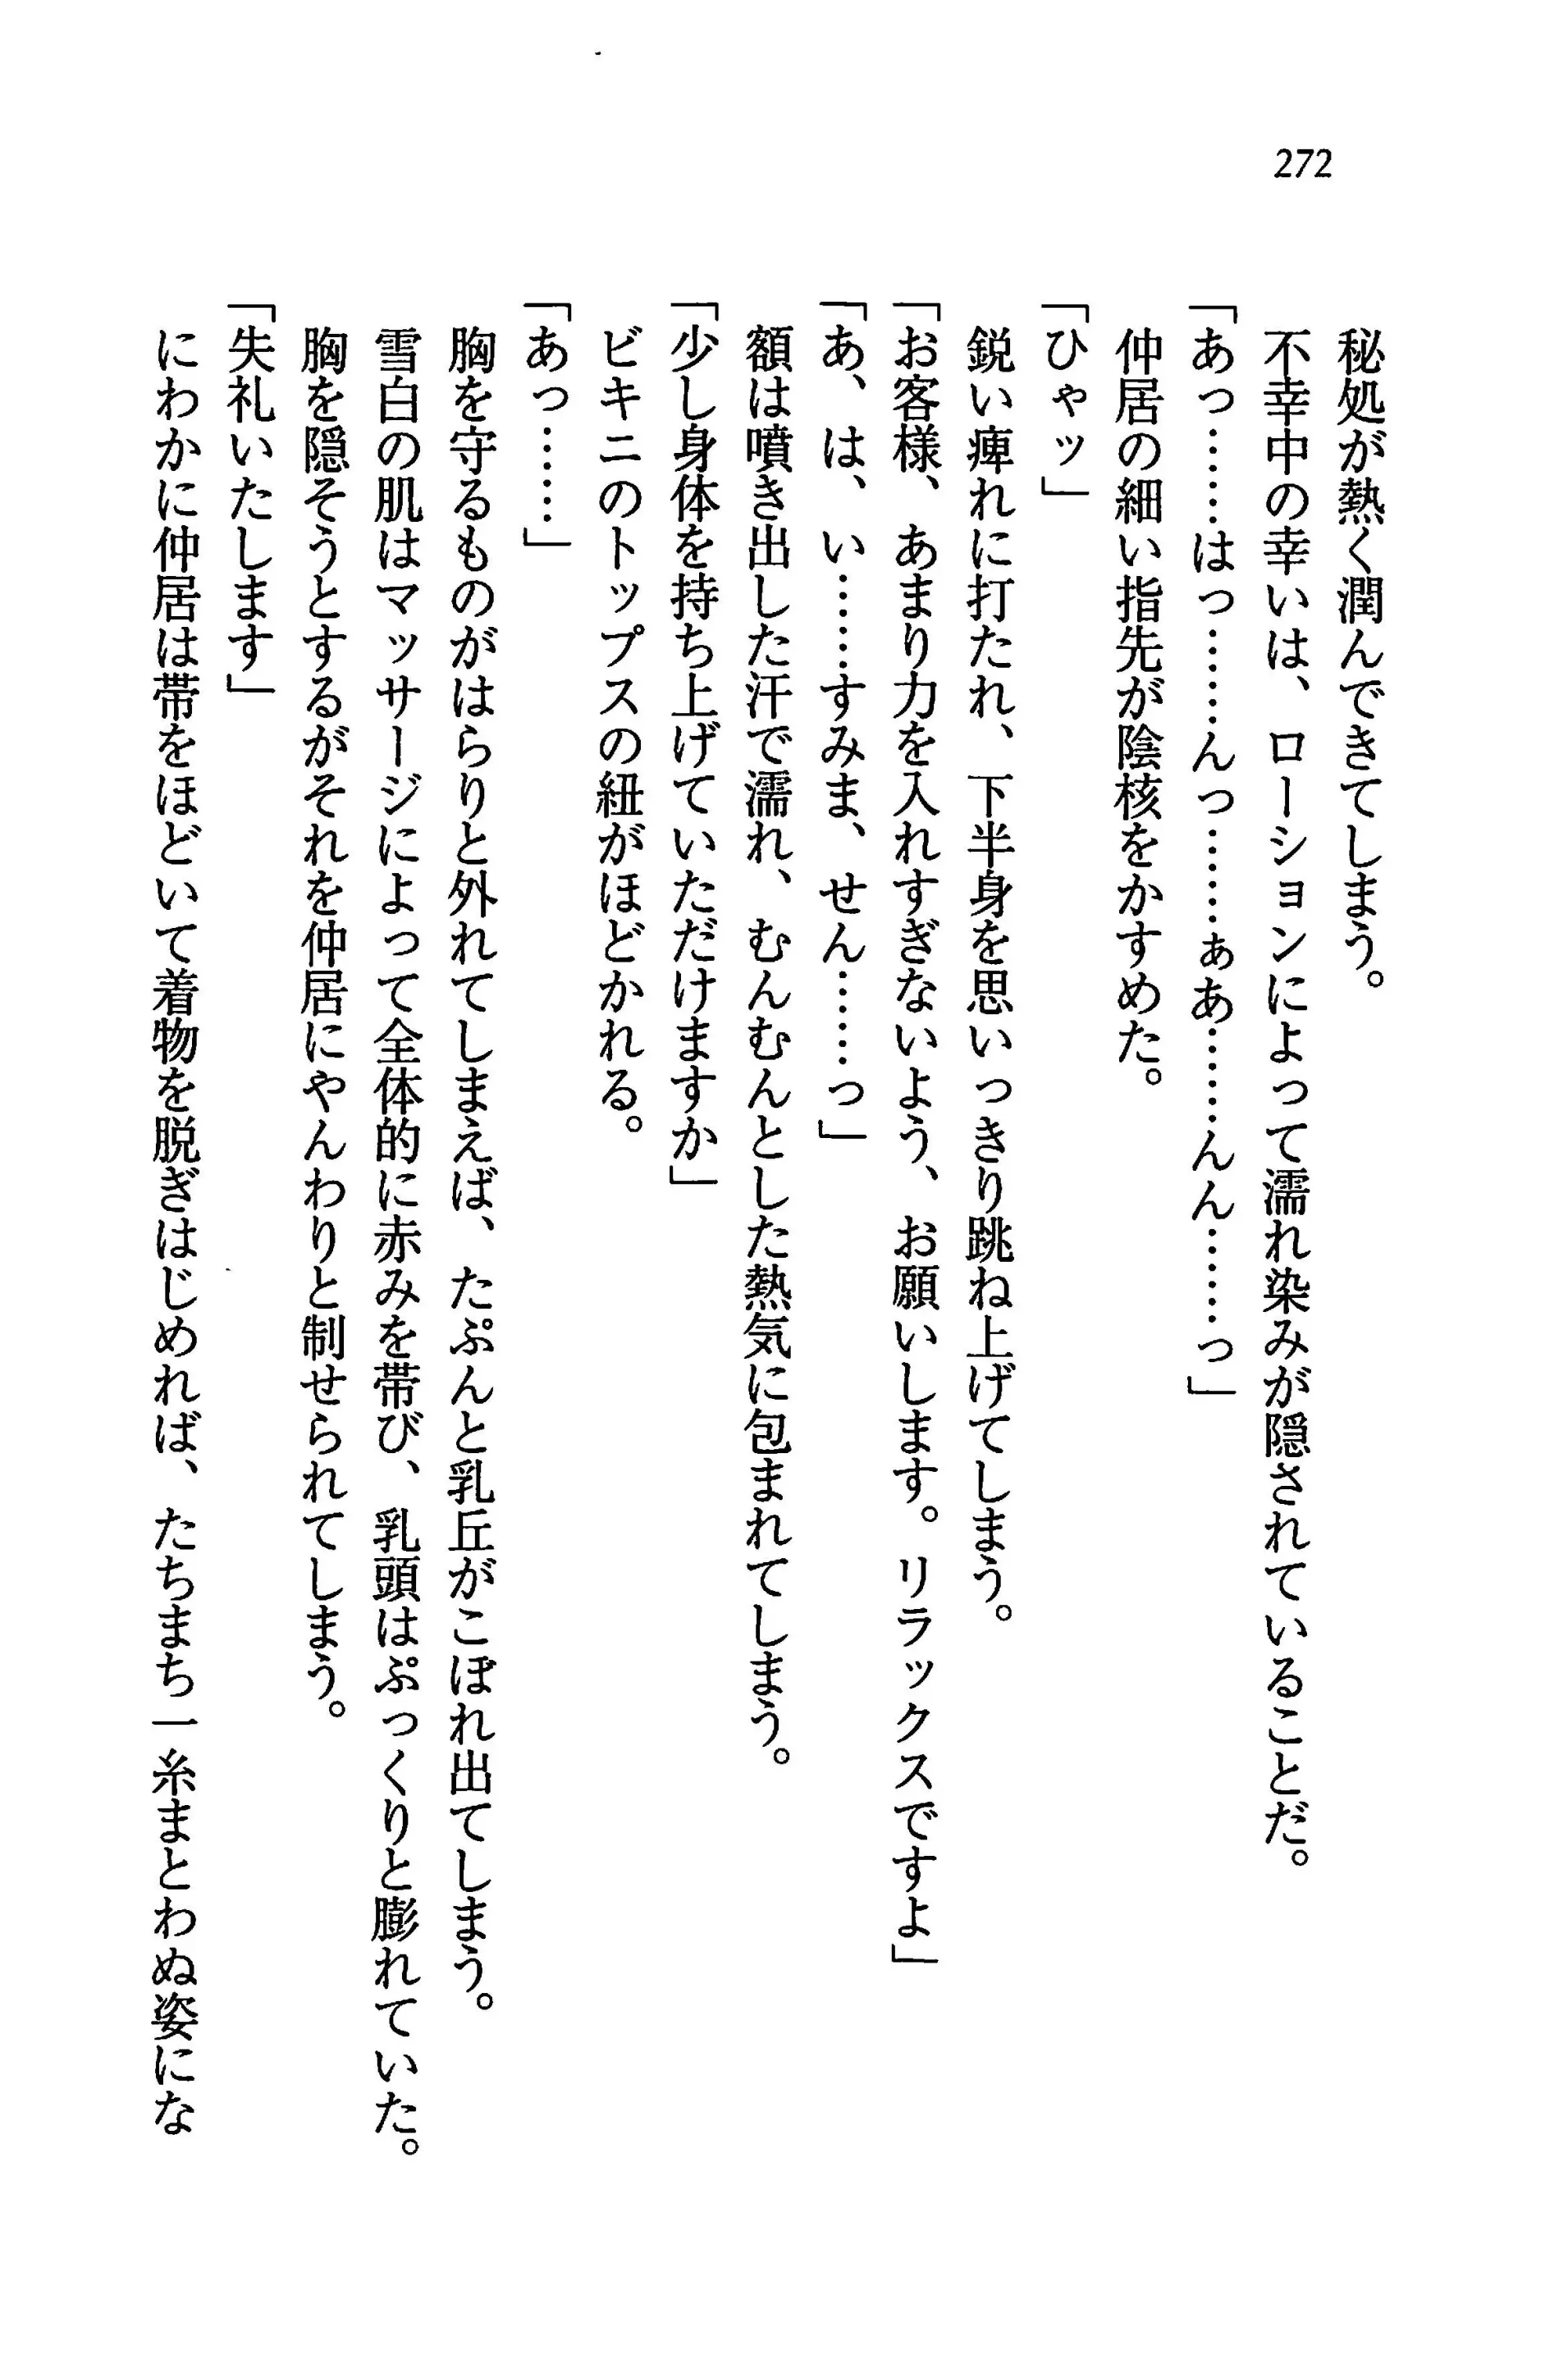 272
秘処が熱く潤んできてしまう。
不幸中の幸いは、ローションによって濡れ染みが隠されていることだ。
「あっ……はっ……んっ……ぁあ……んん……っ」
仲居の細い指先が陰核をかすめた。
「ひゃッ」
鋭い痺れに打たれ、下半身を思いっきり跳ね上げてしまう。
「お客様、あまり力を入れすぎないよう、お願いします。リラックスですよ」
「あ、は、い……すみま、せん……っ」
額は噴き出した汗で濡れ、むんむんとした熱気に包まれてしまう。
「少し身体を持ち上げていただけますか」
ビキニのトップスの紐がほどかれる。
「あっ……」
胸を守るものがはらりと外れてしまえば、たぷんと乳丘がこぼれ出てしまう。
雪白の肌はマッサージによって全体的に赤みを帯び、乳頭はぷっくりと膨れていた。
胸を隠そうとするがそれを仲居にやんわりと制せられてしまう。
「失礼いたします」
にわかに仲居は帯をほどいて着物を脱ぎはじめれば、たちまち一糸まとわぬ姿にな